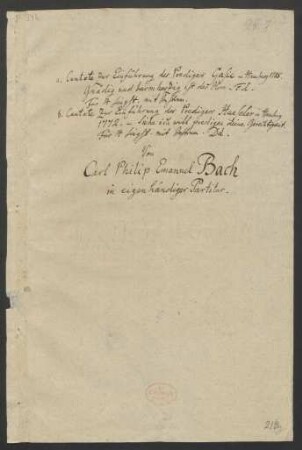 a. Cantate zur Einführung des Prediger Gasie in Hamburg 1785.
Gnädig und barmherzig ist der Herr. F d.
Für 4 Singst. mit Instrum.
b. Cantate zur Einführung des Prediger Haeseler in Hamburg
1772. — ich will predigen deine Gerechtigkeit.
Für 4 Singst. mit Instrum. D d.
Von
Carl Philip Emanuel Bach
in eigenhändiger Partitur.